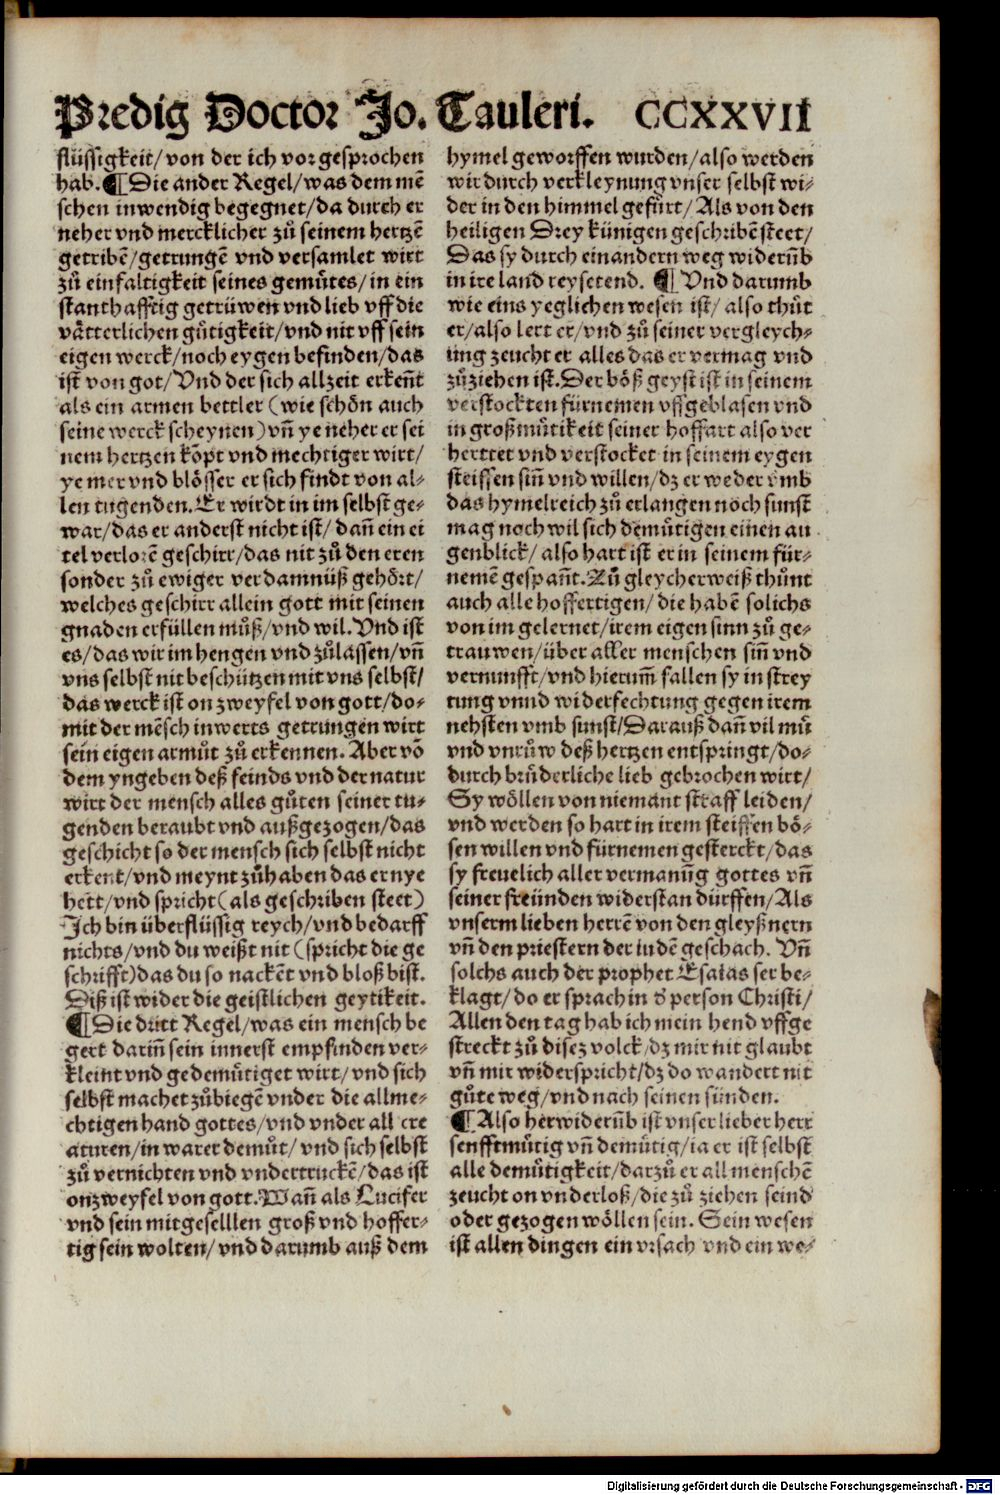 Predig Doctor Jo. Tauleri. CCXXVII
flüssigkeit/ von der ich vor gesprochen
hab. ¶ Die ander Regel/ was dem mẽ
schen inwendig begegnet/ da durch er
neher vnd mercklicher zů seinem hertzẽ
getribẽ/ getrungẽ vnd versamlet wirt
zů einfaltigkeit seines gemůtes/ in ein
stanthafftig getrüwen vnd lieb vff die
våtterlichen gůtigkeit/ vnd nit vff sein
eigen werck/ noch eygen befinden/ das
ist von got/ Vnd der sich allzeit erkeñt
als ein armen bettler (wie schön auch
seine werck scheynen) vñ ye neher er sei
nem hertzen kõpt vnd mechtiger wirt/
ye mer vnd blösser er sich findt von al⸗
len tugenden. Er wirdt in im selbst ge⸗
war/ das er anderst nicht ist/ dañ ein ei
tel verlorẽ geschirr/ das nit zů den eren
sonder zů ewiger verdamnüß gehört/
welches geschirr allein gott mit seinen
gnaden erfüllen můß/ vnd wil. Vnd ist
es/ das wir im hengen vnd zůlassen/ vñ
vns selbst nit beschützen mit vns selbst/
das werck ist on zweyfel von gott/ do⸗
mit der mẽsch inwerts getrungen wirt
sein eigen armůt zů erkennen. Aber võ
dem yngeben deß feinds vnd der natur
wirt der mensch alles gůten seiner tu⸗
genden beraubt vnd außgezogen/ das
geschicht so der mensch sich selbst nicht
erkent/ vnd meynt zůhaben das er nye
hett/ vnd spricht (als geschriben steet)
Ich bin überflüssig reych/ vnd bedarff
nichts/ vnd du weißt nit (spricht die ge
schrifft) das du so nackẽt vnd bloß bist.
Diß ist wider die geistlichen geytikeit.
¶ Die dritt Regel/ was ein mensch be
gert dariñ sein innerst empfinden ver⸗
kleint vnd gedemůtiget wirt/ vnd sich
selbst machet zůbiegẽ vnder die allme⸗
chtigen hand gottes/ vnd vnder all cre
aturen/ in warer demůt/ vnd sich selbst
zů vernichten vnd vndertruckẽ/ das ist
onzweyfel von gott. Wañ als Lucifer
vnd sein mitgeselllen groß vnd hoffer⸗
tig sein wolten/ vnd darumb auß dem
hymel geworffen wurden/ also werden
wir durch verkleynung vnser selbst wi⸗
der in den himmel gefürt/ Als von den
heiligen Drey künigen geschribẽ steet/
Das sy durch ein andern weg widerũb
in ire land reysetend. ¶ Vnd darumb
wie eins yeglichen wesen ist/ also thůt
er/ also lert er/ vnd zů seiner vergleych⸗
ung zeucht er alles das er vermag vnd
zůziehen ist. Der böß geyst ist in seinem
verstockten fürnemen vffgeblasen vnd
in großmůtikeit seiner hoffart also ver
herttet vnd verstocket in seinem eygen
steiffen siñ vnd willen/ dz er weder vmb
das hymelreich zů erlangen noch sunst
mag noch wil sich demůtigen einen au
genblick/ also hart ist er in seinem für⸗
nemẽ gespañt. Zů gleycherweiß thůnt
auch alle hoffertigen/ die habẽ solichs
von im gelernet/ irem eigen sinn zů ge⸗
trauwen/ über aller menschen siñ vnd
vernunfft/ vnd hierum̃ fallen sy in strey
tung vnnd widerfechtung gegen irem
nehsten vmb sunst/ Darauß dañ vil mů
vnd vnrůw deß hertzen entspringt/ do⸗
durch brůderliche lieb gebrochen wirt/
Sy wöllen von niemant straff leiden/
vnd werden so hart in irem steiffen bö⸗
sen willen vnd fürnemen gesterckt/ das
sy freuelich aller vermanũg gottes vñ
seiner freünden widerstan dürffen/ Als
vnserm lieben herrẽ von den gleyßnern
vñ den priestern der iudẽ geschach. Vñ
solchs auch der prophet Esaias ser be⸗
klagt/ do er sprach in d' person Christi/
Allen den tag hab ich mein hend vffge
streckt zů disez volck/ dz mir nit glaubt
vñ mir widerspricht/ dz do wandert nit
gůte weg/ vnd nach seinen sünden.
¶ Also herwiderũb ist vnser lieber herr
senfftmütig vñ demůtig/ ia er ist selbst
alle demůtigkeit/ darzů er all menschẽ
zeucht on vnderloß/ die zů ziehen seind
oder gezogen wöllen sein. Sein wesen
ist allen dingen ein vrsach vnd ein we⸗
Digitalisierung gefördert durch die Deutsche Forschungsgemeinschaft - DFG